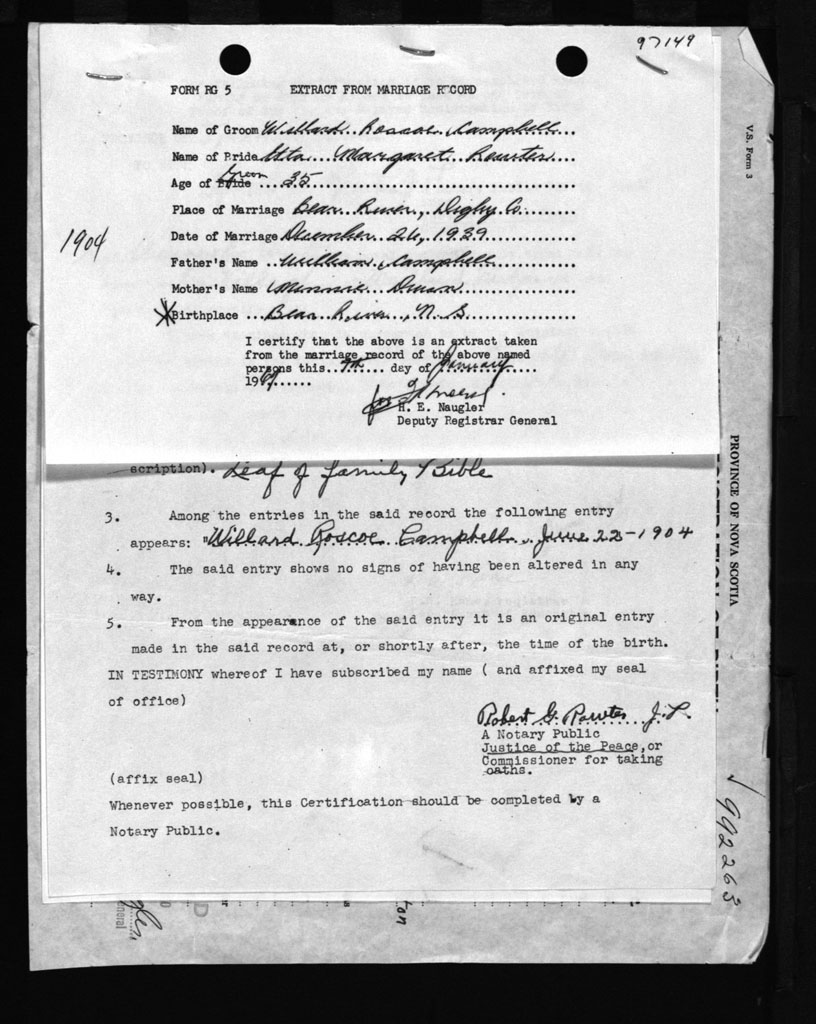 97149
FORM RG 5 EXTRACT FROM MARRIAGE RECORD
Name of Groom Willard Roscoe Campbell
Name of Bride Margaret
Groom
Age of Bride 35
Place of Marriage Bear River, Digby Co.
1904
Date of Marriage December 26, 1939
Father's Name William Campbell
Mother's Name Minnie
X Birthplace Bear River, N.S.
I certify that the above is an extract taken
from the marriage record of the above named
persons this 7th day of January
1969
H. E. Naugler
Deputy Registrar General
scription). Leaf of family Bible
3. Among the entries in the said record the following entry
appears: "Willard Roscoe Campbell, June 22-1904
4. The said entry shows no signs of having been altered in any
way.
5. From the appearance of the said entry it is an original entry
made in the said record at, or shortly after, the time of the birth.
IN TESTIMONY whereof I have subscribed my name ( and affixed my seal
of office)
Robert G. J.P.
A Notary Public
Justice of the Peace, or
Commissioner for taking
oaths.
(affix seal)
Whenever possible, this Certification should be completed by a
Notary Public.
V.S. Form 3
PROVINCE OF NOVA SCOTIA
992263